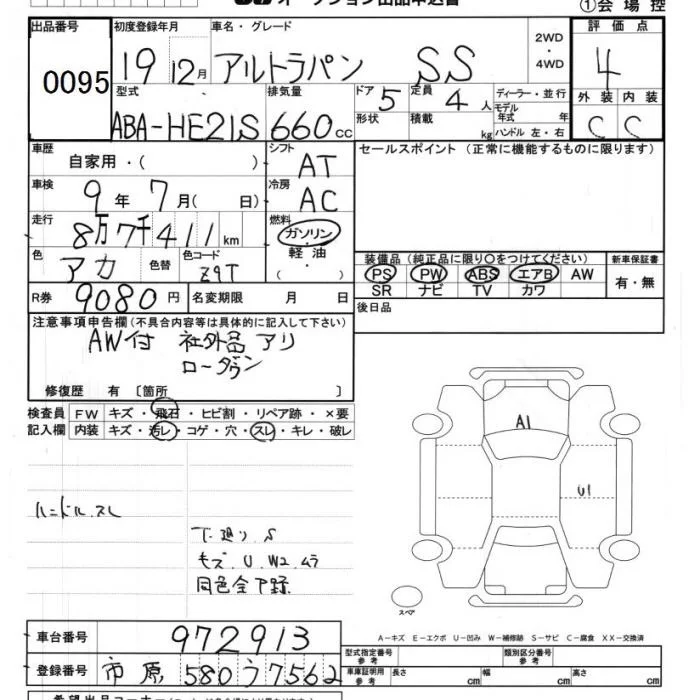 オークション出品申込書
①会場控
出品番号 初度登録年月 車名・グレード 評価点
0095 19 12月 アルトラパン SS 2WD・4WD 4
型式 排気量 ドア 定員 ディーラー・並行 外装 内装
ABA-HE21S 660cc 5 4人 モデル年式 年 C C
形状 積載 kg ハンドル 左・右
車歴 シフト セールスポイント (正常に機能するものに限ります)
自家用・( ) AT
車検 冷房
9年7月( 日) AC
走行 燃料
8万7千411km ガソリン・軽油( )
色 色替 色コード 装備品 (純正品に限り○をつけてください) 新車保証書
アカ Z9T PS PW ABS エアB AW 有・無
SR ナビ TV カワ
R券 9080円 名変期限 月 日 後日品
注意事項申告欄(不具合内容等は具体的に記入して下さい)
AW付 社外品アリ
ローダウン
修復歴 有 〔箇所 〕
検査員 FW キズ・飛石・ヒビ割・リペア跡・×要
記入欄 内装 キズ・汚レ・コゲ・穴・スレ・キレ・破レ
A1
U1
ハンドル スレ
下廻り S
キズ.U.W2.ムラ
同色全下録
スペア
A-キズ E-エクボ U-凹み W-補修跡 S-サビ C-腐食 XX-交換済
車台番号 972913 型式指定番号 参考 類別区分番号 参考
登録番号 市原 580 う 7562 車庫証明用 参考 長さ cm 幅 cm 高さ cm
希望出品コーナー